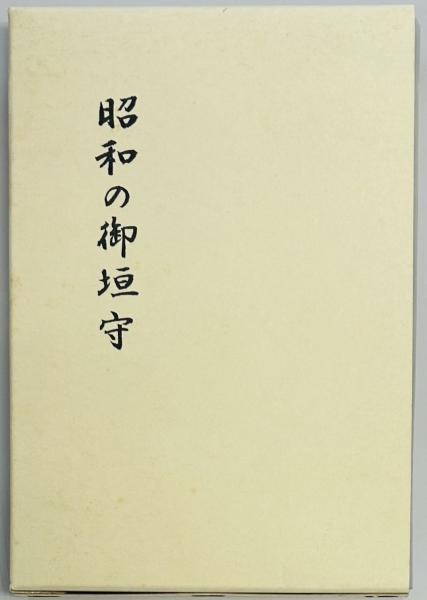 昭和の御垣守